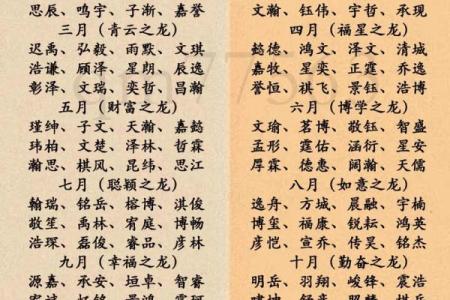 思辰、鸣宇、子渐、嘉誉
三月（青云之龙）
迟禹、弘毅、雨默、文琪
浩谦、顾泽、星朗、辰逸
彰泽、文瑞、奕哲、昌瀚
五月（财富之龙）
瑾绅、子文、天瀚、嘉懿
玮柏、文楚、泽林、哲霖
瀚思、棋风、昆纬、思江
七月（聪颖之龙）
翰瑞、铭岳、榕博、淇俊
敬笙、禹林、宥庭、博畅
浩琛、磊俊、睿品、彦林
九月（幸福之龙）
源嘉、承安、垣卓、智睿
文瀚、钰伟、宇哲、承现
四月（福星之龙）
懿德、鸿文、泽文、清城
嘉牧、星奕、正霆、乔逸
誉恒、祺飞、景钰、浩博
六月（博学之龙）
文瑜、茗博、敬钰、智盛
孟彤、霆佑、涵衍、星安
厚霖、德惠、阔瀚、天儒
八月（如意之龙）
逸舟、方城、晨融、宇楠
博玺、福康、锐耘、鸿英
彦恺、宣乔、传昊、铭杰
十月（勤奋之龙）
明岳、羽翔、峻锋、宸浩